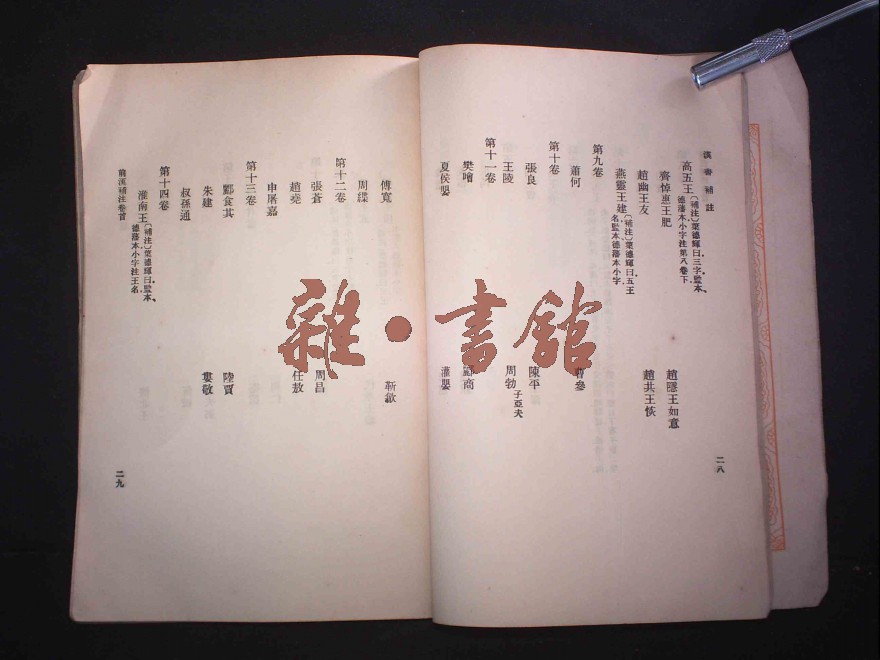 漢書補註
高五王〔補注〕葉德輝曰三字、監本、德藩本小字注第八卷下
齊悼惠王肥 趙隱王如意
趙幽王友 趙共王恢
燕靈王建〔補注〕葉德輝曰五王名、監本、德藩本小字
第九卷
蕭何 曹參
第十卷
張良 陳平
王陵 周勃 子亞夫
第十一卷
樊噲 酈商
夏侯嬰 灌嬰
二八
傅寬 靳歙
周緤
第十二卷
張蒼 周昌
趙堯 任敖
申屠嘉
第十三卷
酈食其 陸賈
朱建 婁敬
叔孫通
第十四卷
淮南王〔補注〕葉德輝曰、監本、德藩本小字注王名
補注卷首
二九
雜·書館